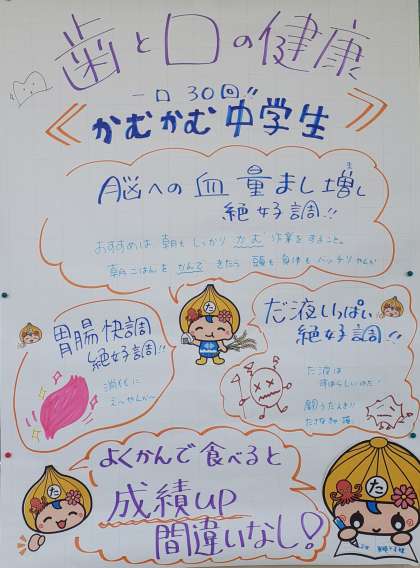 歯と口の健康
一口30回"
かむかむ中学生
脳への血量まし増し
絶好調!!
おすすめは朝もしっかりかむ作業をすること。
朝ごはんをかんできたら頭も身体もバッチリやんか
胃腸快調
絶好調!!
消化に
えっやんか〜
だ液いっぱい
絶好調!!
だ液は
すばらしいのだ!
よくかんで食べると
成績up
間違いなし!
た
た
た